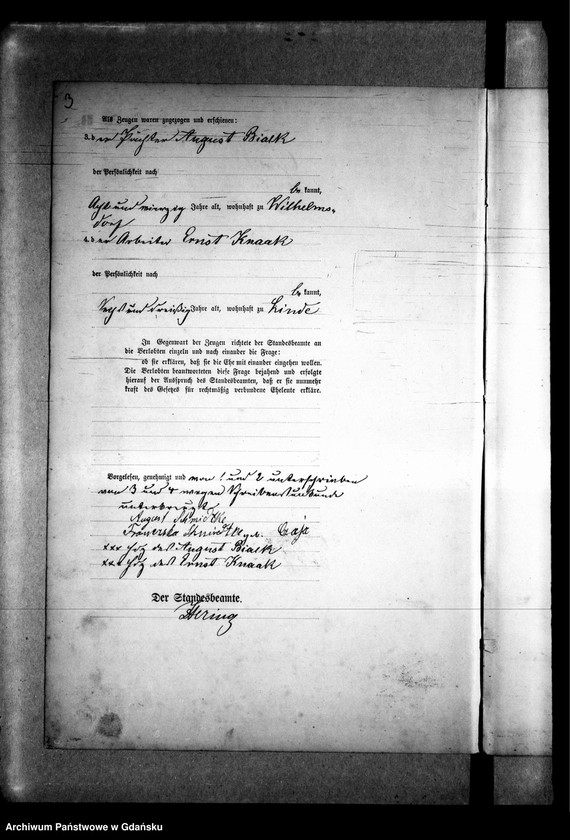 3
Als Zeugen waren zugezogen und erschienen:
3. der Pächter August Bialk
der Persönlichkeit nach
be kannt,
Acht und vierzig Jahre alt, wohnhaft zu Wilhelms-
dorf
4. der Arbeiter Ernst Knaak
der Persönlichkeit nach
be kannt,
Sechs und dreißig Jahre alt, wohnhaft zu Linde
In Gegenwart der Zeugen richtete der Standesbeamte an
die Verlobten einzeln und nach einander die Frage:
ob sie erklären, daß sie die Ehe mit einander eingehen wollen.
Die Verlobten beantworteten diese Frage bejahend und erfolgte
hierauf der Ausspruch des Standesbeamten, daß er sie nunmehr
kraft des Gesetzes für rechtmäßig verbundene Eheleute erkläre.
Vorgelesen, genehmigt und von 1 und 2 unterschrieben
von 3 und 4 wegen Schreibensunkunde
unterkreuzt
August Schmidtke
Franziska Schmidtke geb.
xxx Hdz des August Bialk
xxx Hdz des Ernst Knaak
Der Standesbeamte.
Hering
Archiwum Państwowe w Gdańsku